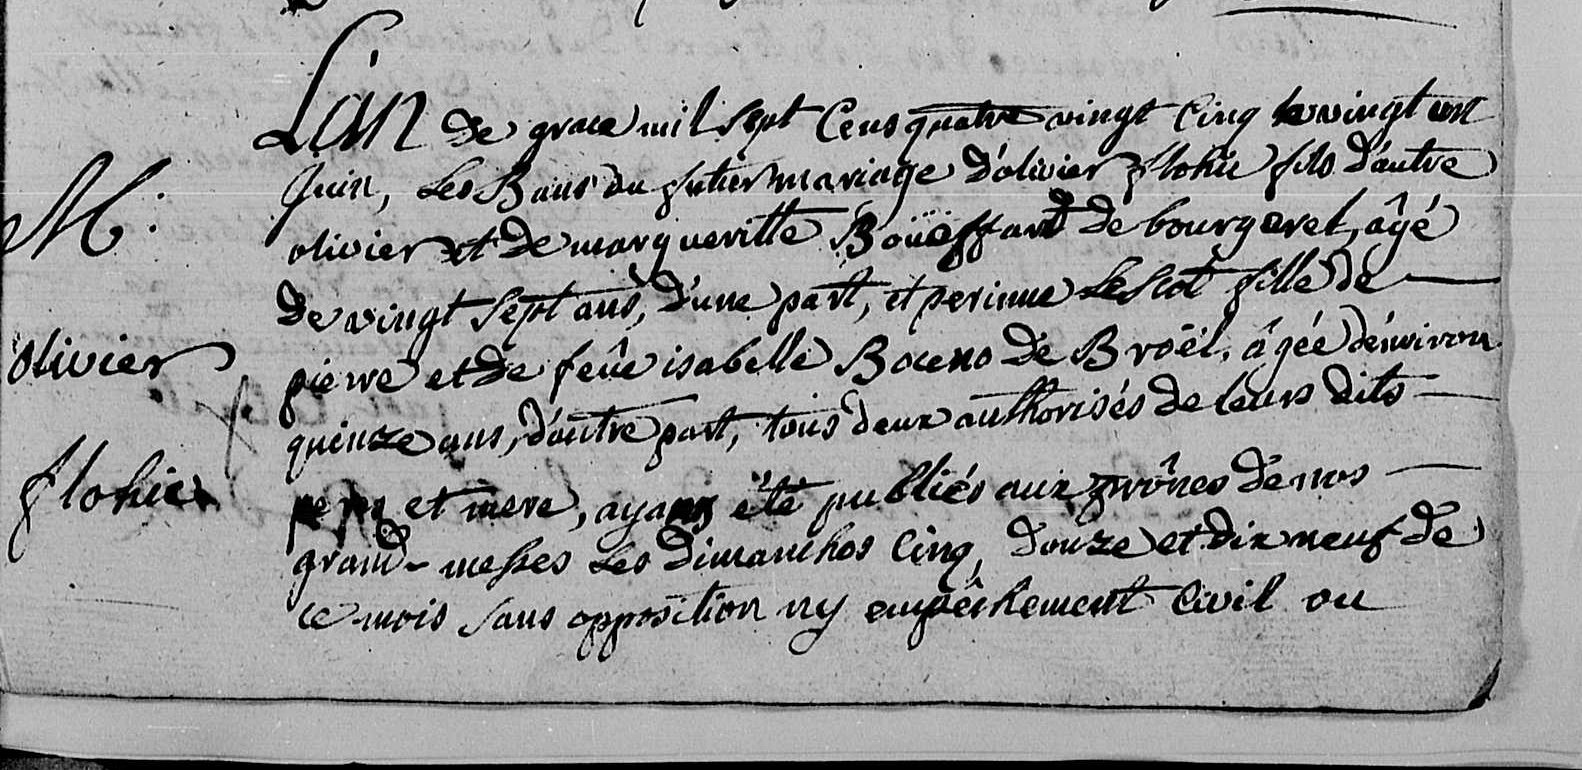 Lan de grace mil sept Cens quatre vingt Cinq le vingt un
M:
Juin, Les Bans du futur mariage d'olivier flohic fils d'autre
olivier et de margueritte Boüeffard de bourgerel, âgé
de vingt sept ans, d'une part, et perinne Le Scot fille de
olivier
pierre et de feüe isabelle Boceno de Broël, âgée d'environ
quinze ans, d'autre part, tous deux authorisés de leurs dits
flohic
pere et mere, ayans été publiés aux prônes de nos
grand-messes Les dimanches Cinq, douze et dix neuf de
ce mois sans opposition ny empêchement Civil ou